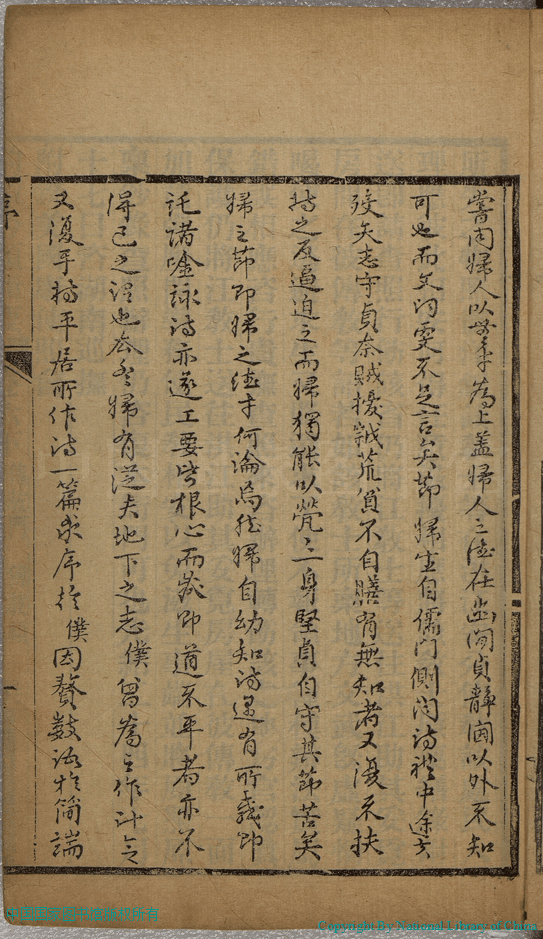 嘗聞婦人以無才為上蓋婦人之德在幽閒貞靜閫以外不知
可也而文詞更不足言矣節婦生自儒門側聞詩禮中途夫
歿矢志守貞奈賊擾歲荒貧不自賸有無知者又復不扶
持之反逼迫之而婦獨能以煢煢一身堅貞自守其節苦矣
婦之節即婦之德才何論焉然婦自幼知詩遇有所感即
託諸唫詠詩亦遂工要皆根心而發即道不平者亦不
得已之詞也茲婦有從夫地下之志僕曾為之作計今
又復手持平居所作詩一篇求序於僕因贅數語於簡端
序
Copyright By National Library of China